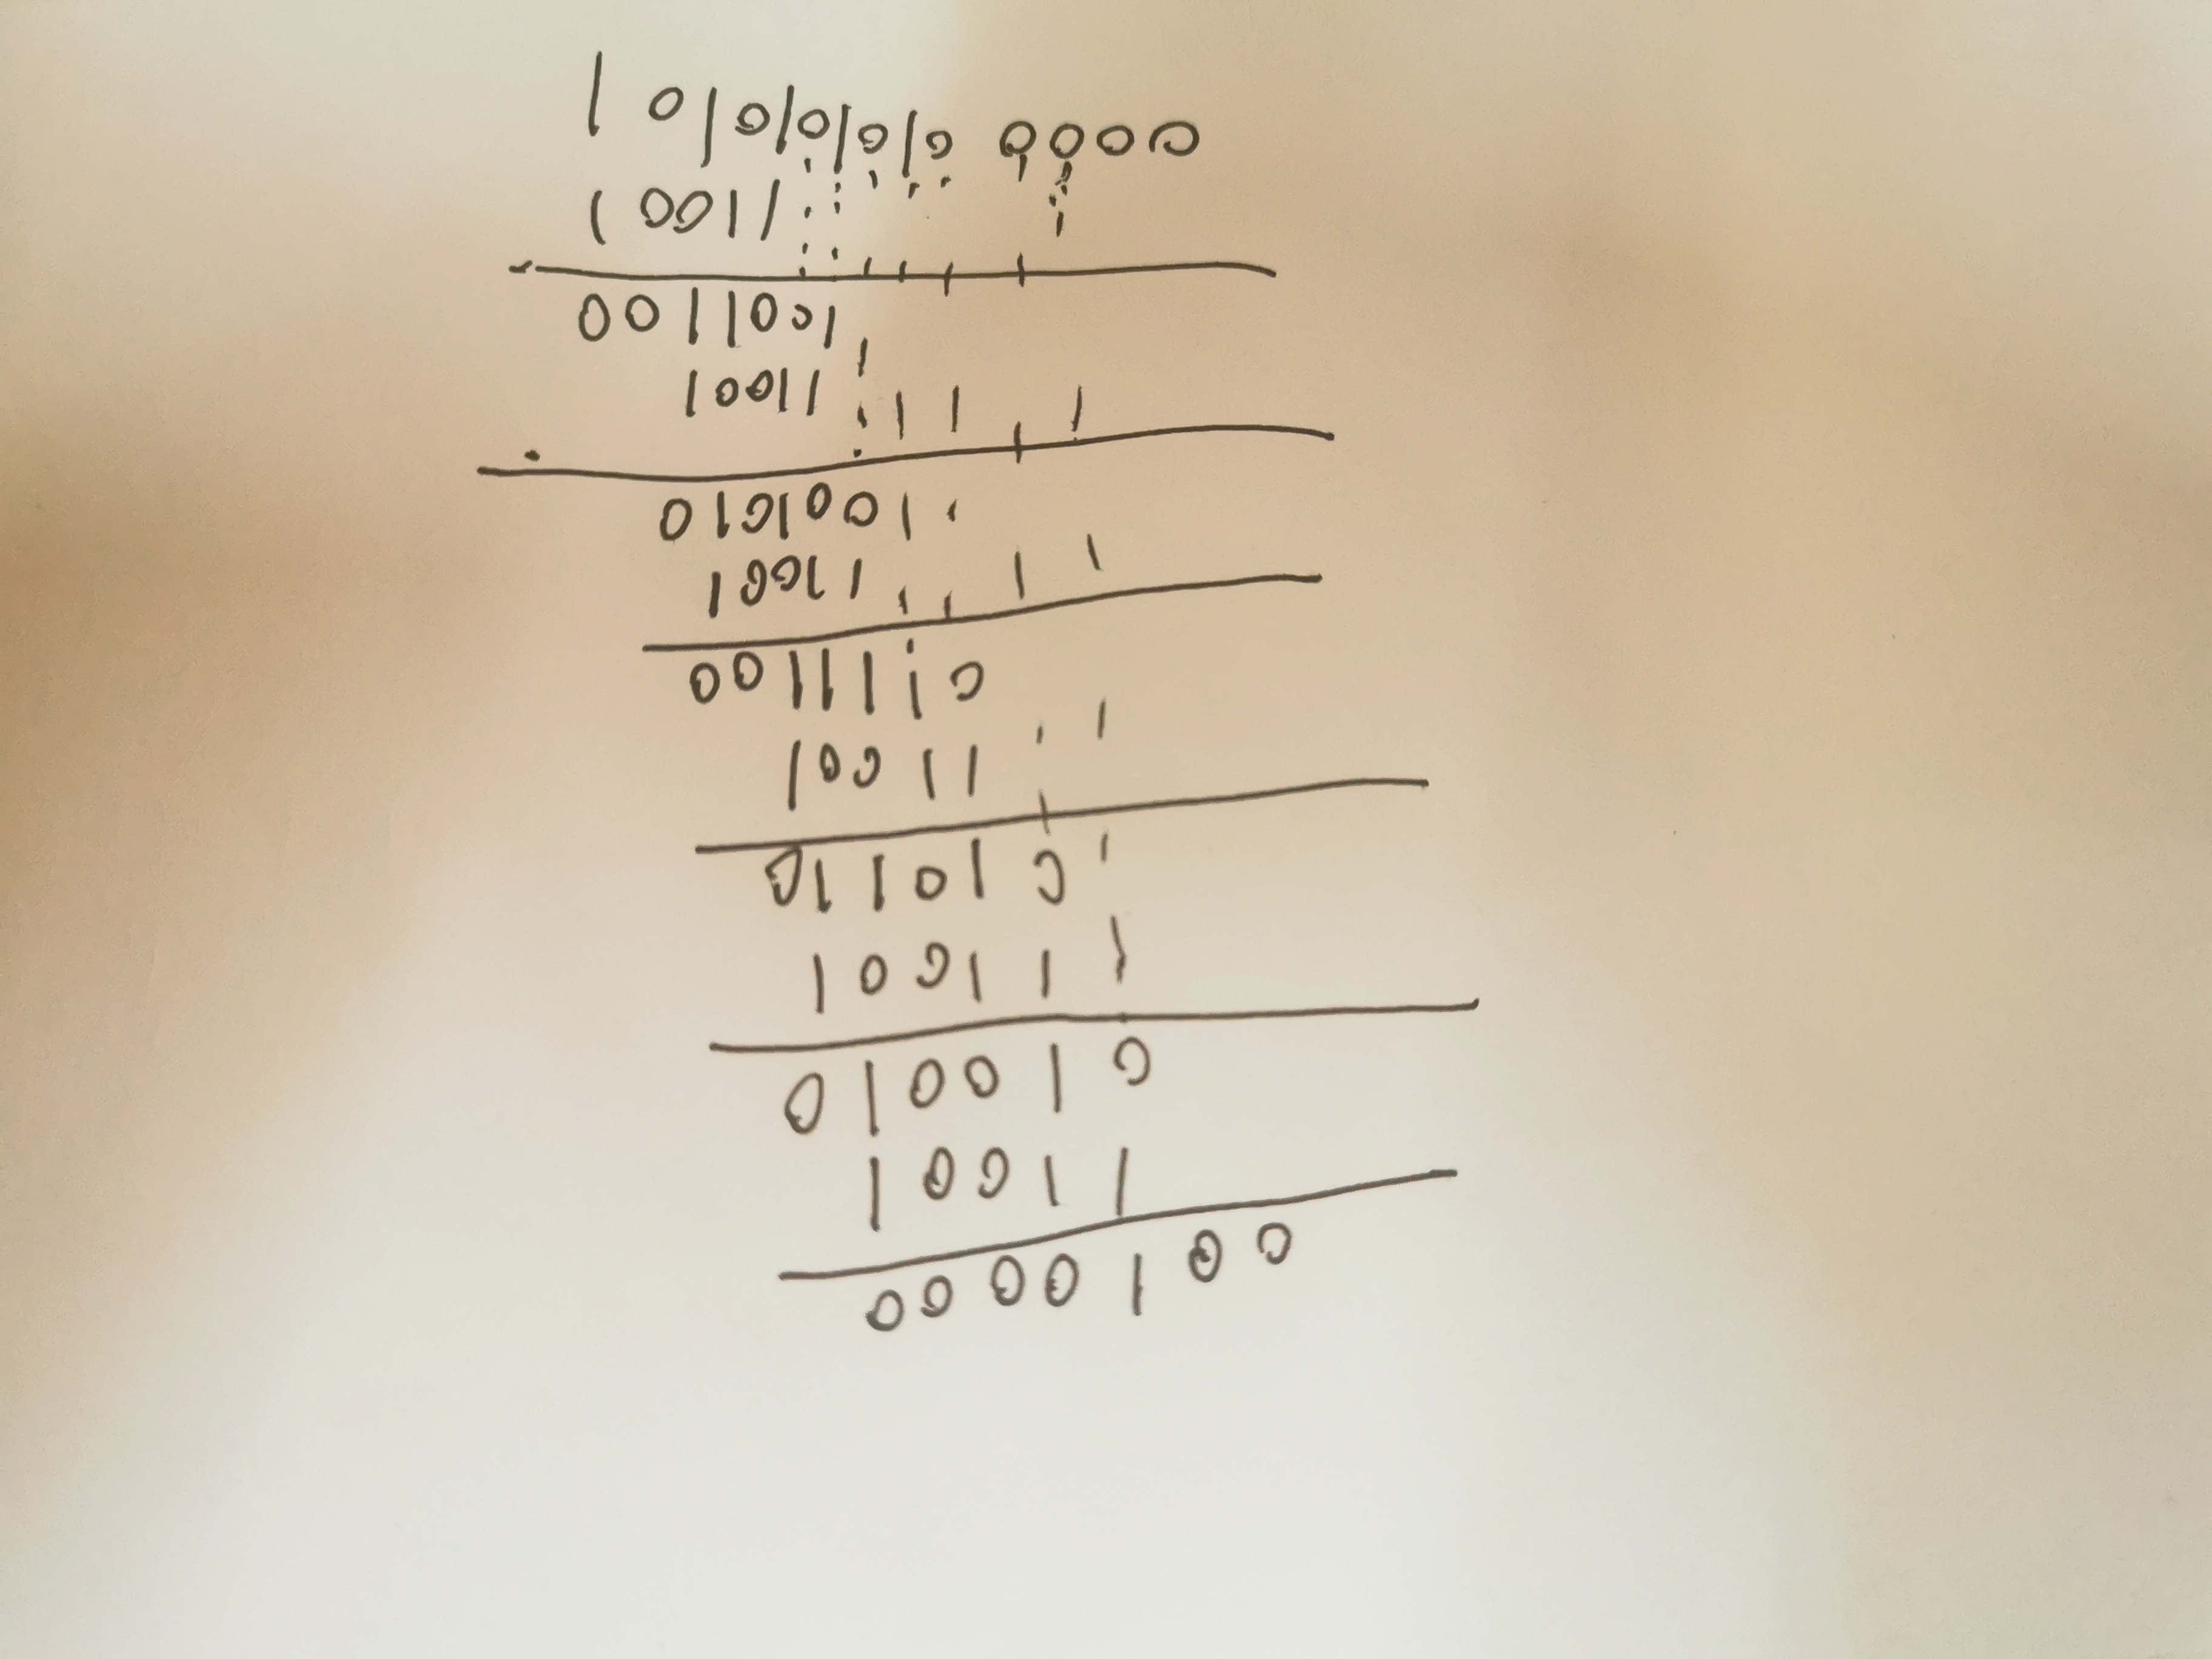 10101010100000
10011
0011001
10011
0101001
10011
0011110
10011
011010
10011
010010
10011
0000100